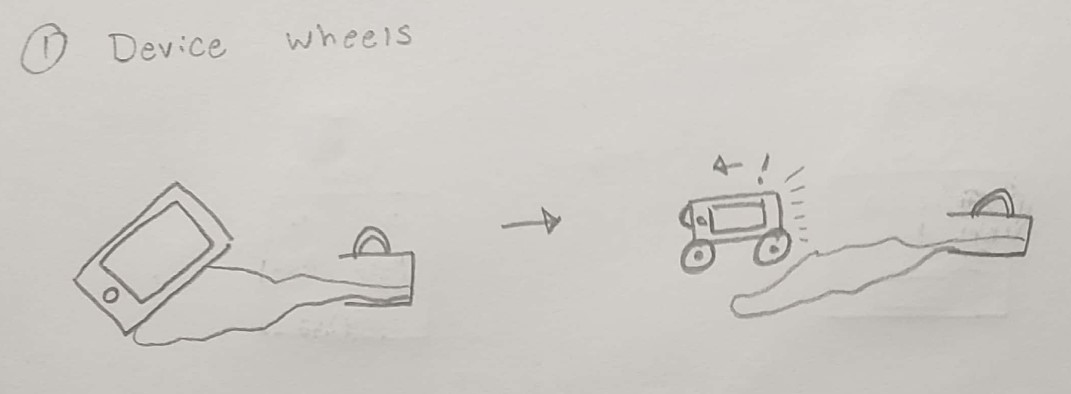 ① Device wheels
!